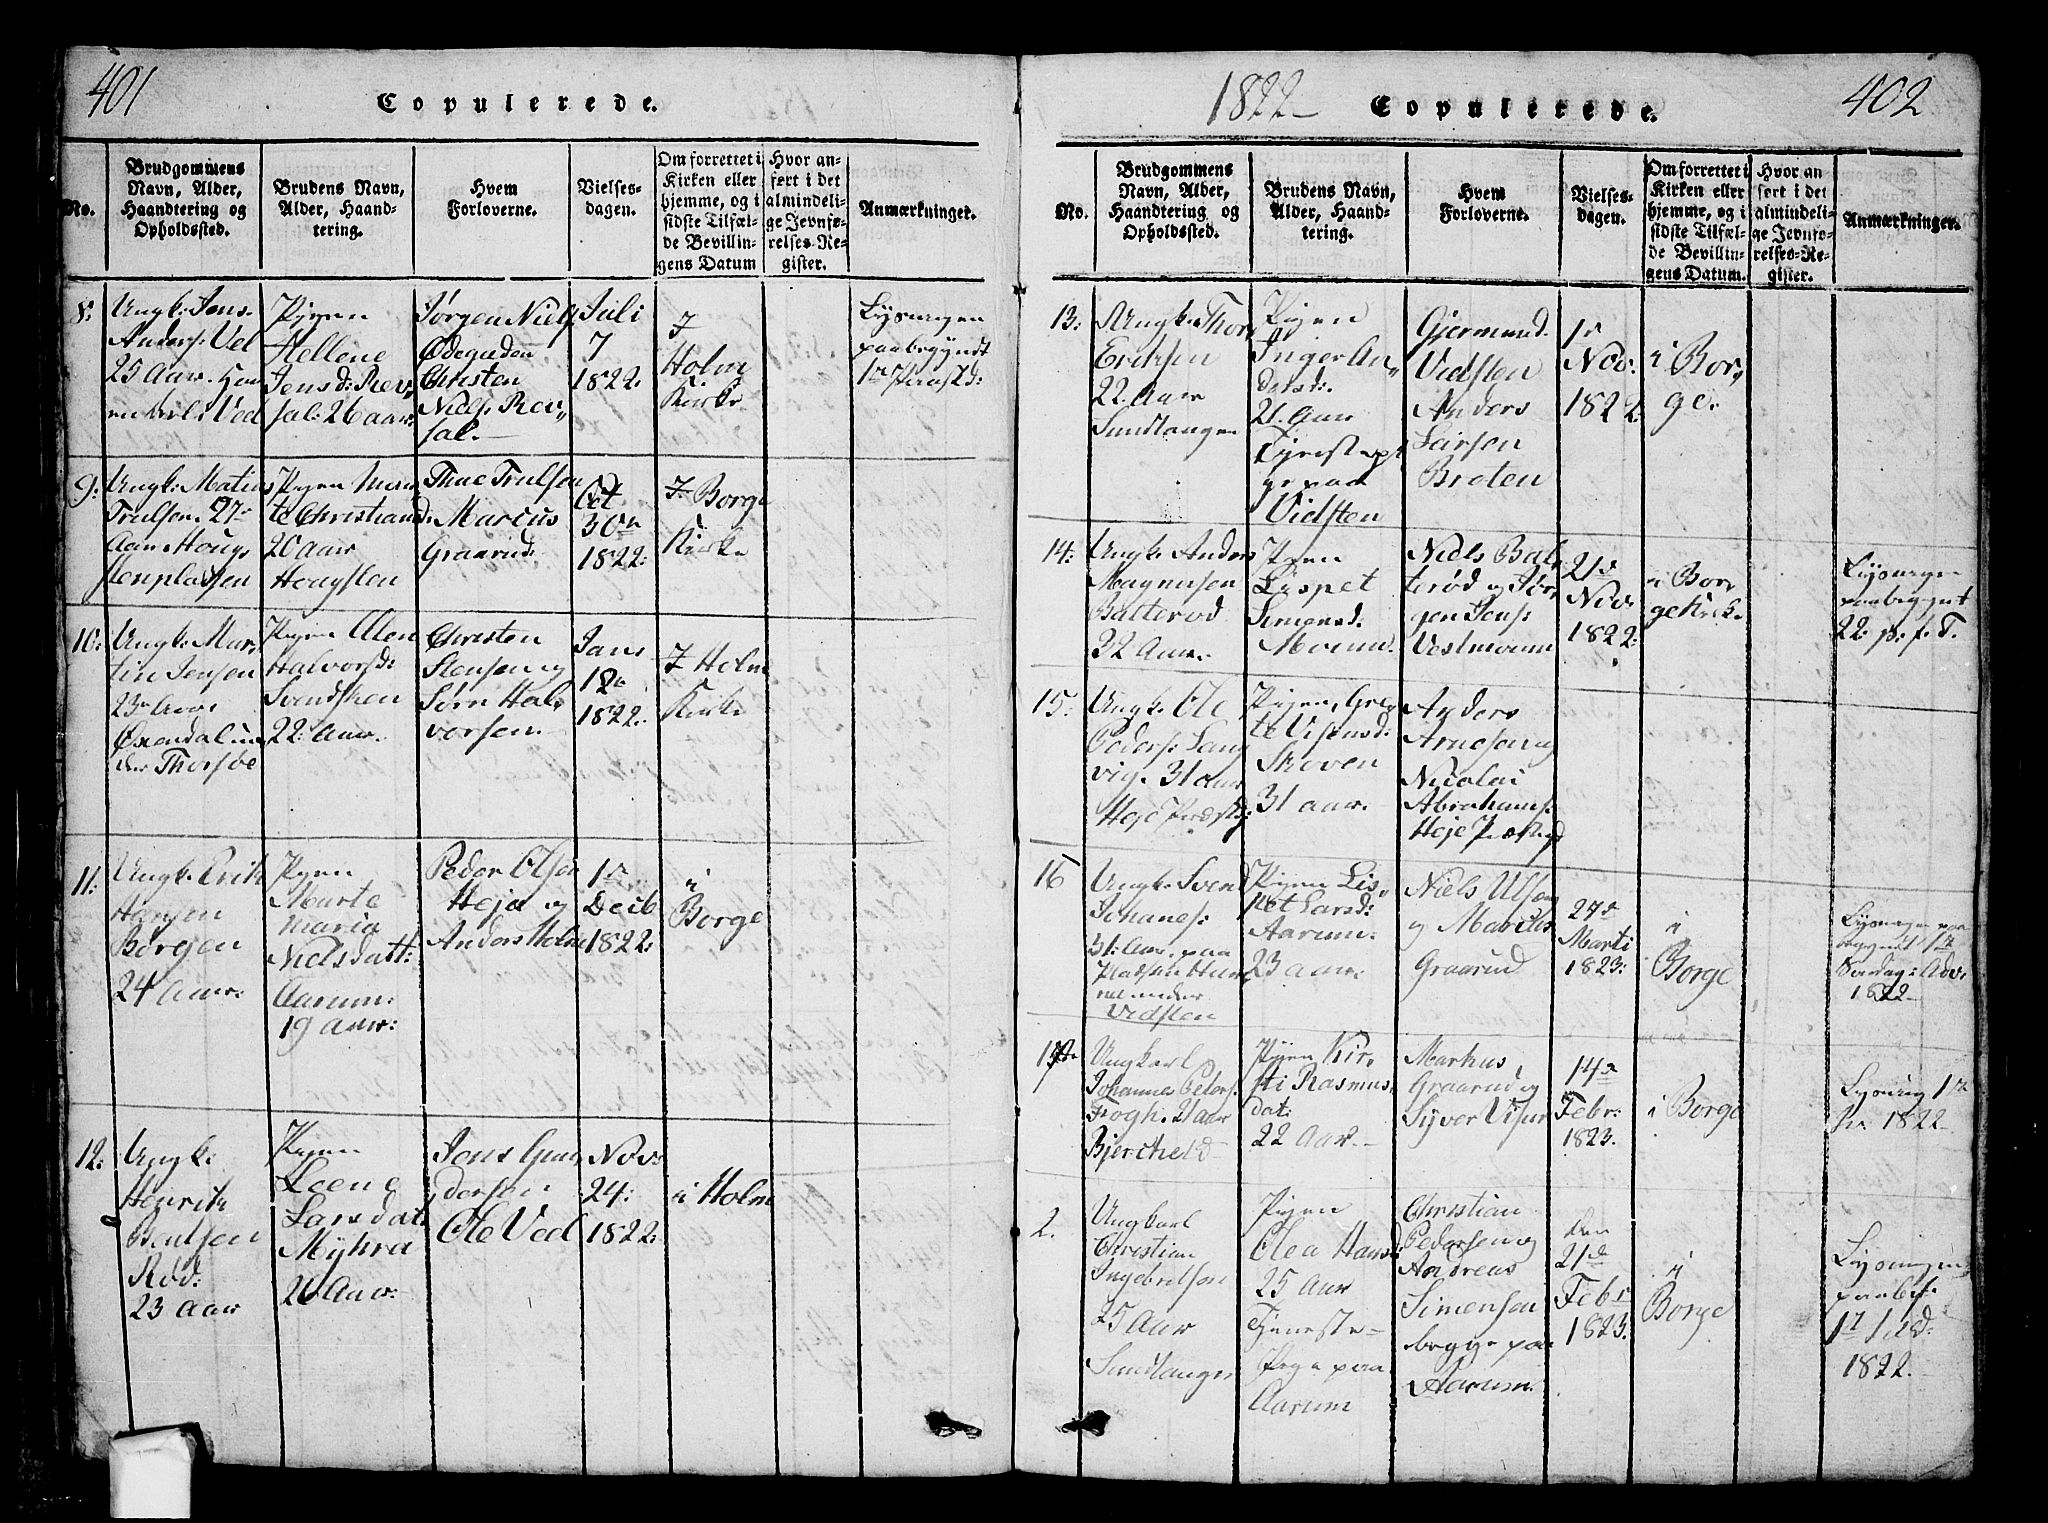 401
Copulerede.
No.
Brudgommens
Navn, Alder,
Haandtering og
Opholdssted.
Brudens Navn,
Alder, Haand-
tering.
Hvem
Forloverne.
Vielses-
dagen.
Om forrettet i
Kirken eller
hjemme, og i
sidste Tilfæl-
de Bevillin-
gens Datum
Hvor an-
ført i det
almindeli-
ge Jevnfø-
relses-Re-
gister.
Anmærkninger.
8:
Ungk: Jens
Anders: Vel
25 Aar
Ved
Pigen
Hellene
Jensd: Rev,,
sal: 26 aar
Jørgen Niels
Ødegaden
Christen
Niels: Rev,,
sal.
Juli
7
1822.
I
Holm
Kirke
Lysningen
paabegyndt
9:
Ungk: Matius
Trulsen 27
Aar Houg,
stenpladsen
Pigen
te Christiansd:
20 aar
Hougsten
Thue Trulsen
Marcus
Graarud
Oct
30te
1822:
I Borge
Kirke
10:
Ungk: Mar,
tin Jensen
23 Aar
Oxendal un,
der Thorsøe
Pigen Olen
Halvorsd:
Svendsken
22 Aar.
Christen
Stensen og
Sørn Hal,
vorsen.
Jan:
1822.
I Holm
Kirke
11:
Ungk: Erik
Hansen
Borgen
24 Aar.
Pigen
Marte
Maria
Nielsdatt:
Aarum:
19 Aar:
Peder Olsen
Heje og
Anders Holm
1te
Decb
1822:
i
Borge
12:
Ungk:
Henrik
Bentsen
Rød:
23 aar
Pigen
Leene
Larsdat
Myhra
26 Aar.
Jens Gun,
dersen
Ole Ved
Nov:
24:
1822:
i Holm
1822
Copulerede.
402
No.
Brudgommens
Navn, Alder,
Haandtering og
Opholdssted.
Brudens Navn,
Alder, Haand-
tering.
Hvem
Forloverne.
Vielses-
dagen.
Om forrettet i
Kirken eller
hjemme, og i
sidste Tilfæl-
de Bevillin-
gens Datum.
Hvor an-
ført i det
almindeli-
ge Jevnfø-
relses-Re-
gister.
Anmærkninger.
13:
Ungk: Thor
Eriksen
22 Aar
Sundlangen
Pigen
Inger An,,
dersd:
21 Aar
Tjenestepi
ge paa
Vidsten
Gjermund
Vidsten
Anders
Larsen
Braten
1te
Nov:
1822:
i Bor,
ge.
14:
Ungk: Anders
Magnusen
Batterød
32 Aar.
Pigen
Lispet
Simensd:
Moum
Niels Bat,
terød og Jør,
gen Jens:
Vestmoum
21de
Nov
1822:
i Bor
ge Kirk.
Lysningen
paabegynt
22: p. f. T.
15.
Ungk: Ole
Peders: Lang
vig. 31 aar
Heje Præstg:
Pigen, Gre,
te Visensd:
Skoven
31 aar.
Anders
Arnesen og
Nicolai
Abrahams:
Heje Præstegd
16
Ungk: Svend
Johanes:
31: Aar. paa
Pladsen
under
Vidsten
Pigen Lis,,
pet Larsd:
Aarum.
23 aar.
Niels Ulsen
og Marcus
Graarud
27de
Marti
1823:
i
Borge
Lysningen paa
begynt 1ste
Søndag i Adv.
1822
1ste
Ungkarl
Johannes Peders:
Fogh. 21 aar
Bjercheld
Pigen Kir,
sti Rasmus,
dat:
22 Aar.
Markus
Graarud og
Syver Visur
14de
Febr:
1823.
i Borge
Lysning 17
1822
2.
Ungkarl
Christian
Ingebretsen
25 Aar
Sundlangen
Pigen
Olea Hansd:
25 Aar
Tjeneste-
Pige paa
Aarum
Christian
Pedersen og
Andreas
Simensen
begge paa
Aarum.
den
21de
Febr
1823.
i
Borge
Lysningen
paabeg.
1822.